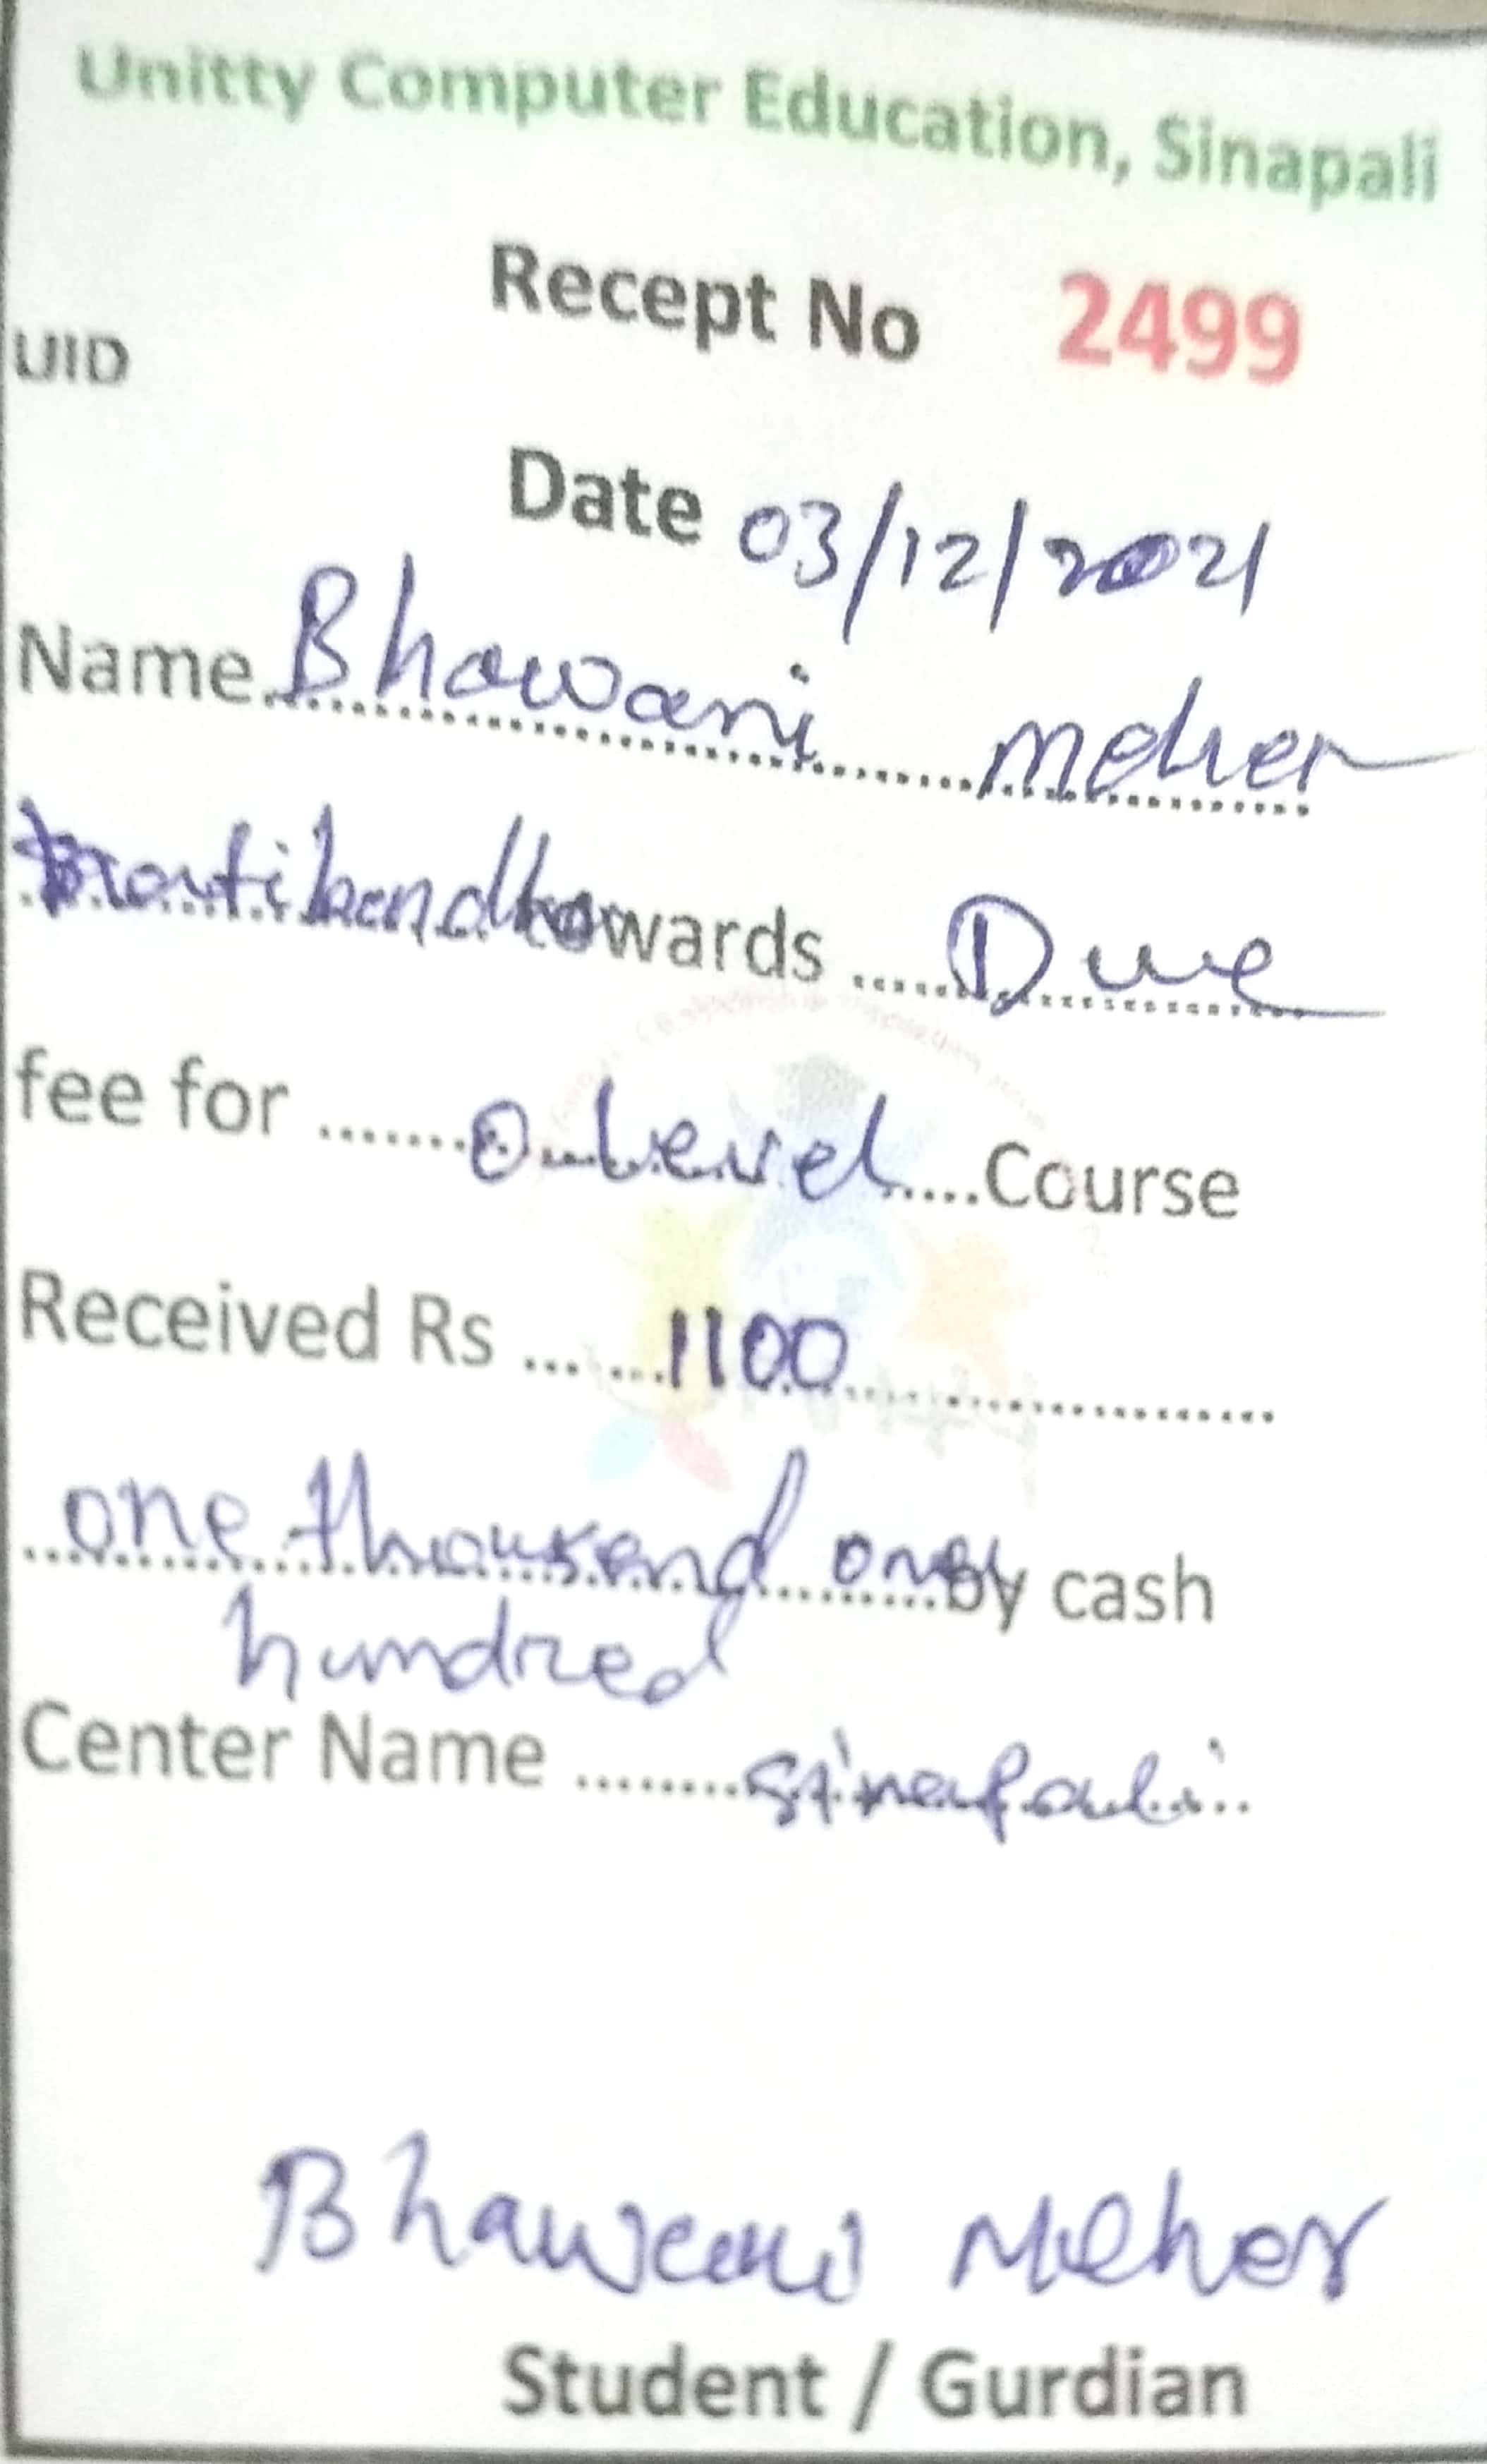 Unitty Computer Education, Sinapali
Recept No 2499
UID
Date 03/12/2021
Name Bhawani meher
towards Due
fee for O Level Course
Received Rs 1100
one thousand one By cash
hundred
Center Name Sinapali
Bhawani Meher
Student / Gurdian